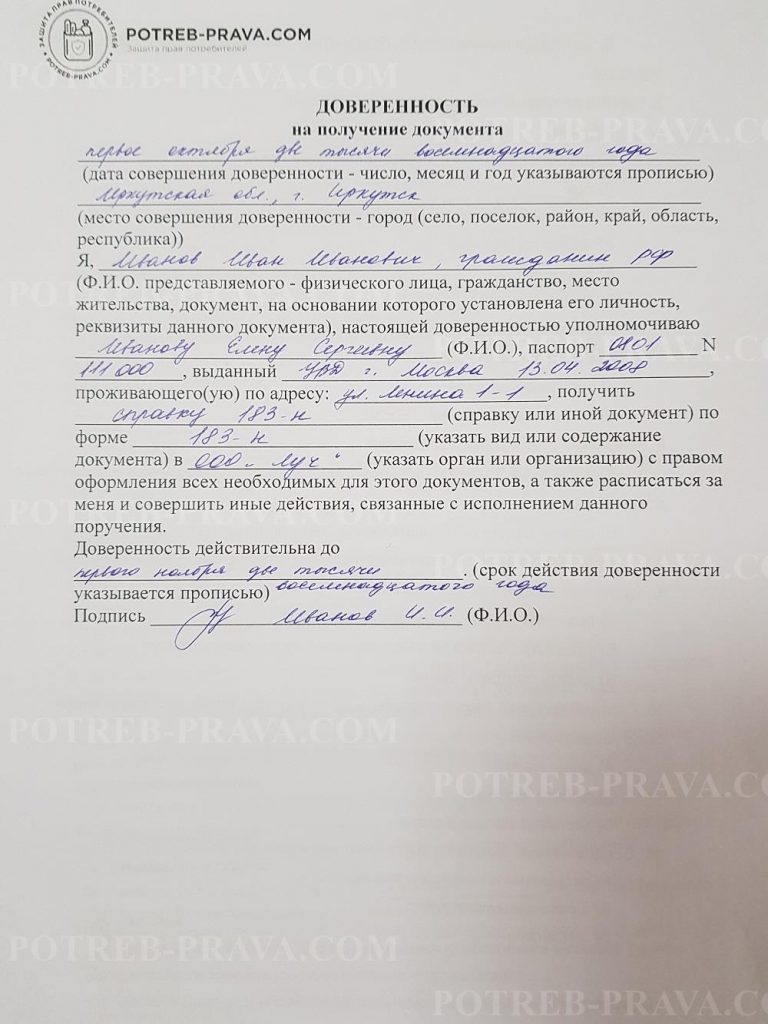 ЗАЩИТА ПРАВ ПОТРЕБИТЕЛЕЙ
POTREB-PRAVA.COM
POTREB-PRAVA.COM
Защита прав потребителей
POTREB-PRAVA.COM
ДОВЕРЕННОСТЬ
на получение документа
POTREB-PRAVA.CO
первое октября две тысячи восемнадцатого года
(дата совершения доверенности - число, месяц и год указываются прописью)
Иркутская обл., г. Иркутск
(место совершения доверенности - город (село, поселок, район, край, область,
республика))
Я, Иванов Иван Иванович, гражданин РФ
(Ф.И.О. представляемого - физического лица, гражданство, место
жительства, документ, на основании которого установлена его личность,
реквизиты данного документа), настоящей доверенностью уполномочиваю
Иванову Елену Сергеевну (Ф.И.О.), паспорт 0801 N
111 000, выданный УВД г. Москва 13.04.2008,
проживающего(ую) по адресу: ул. Ленина 1-1, получить
справку 183-н (справку или иной документ) по
форме 183-н (указать вид или содержание
документа) в ООО "Луч" (указать орган или организацию) с правом
оформления всех необходимых для этого документов, а также расписаться за
меня и совершить иные действия, связанные с исполнением данного
поручения.
Доверенность действительна до
первого ноября две тысячи. (срок действия доверенности
указывается прописью) восемнадцатого года
Подпись Иванов И.И. (Ф.И.О.)
POTREB-PRAVA.COM
POTREB-PRAVA.CO
POTREB-PRAVA.COM
POTREB-PRAVA.CO